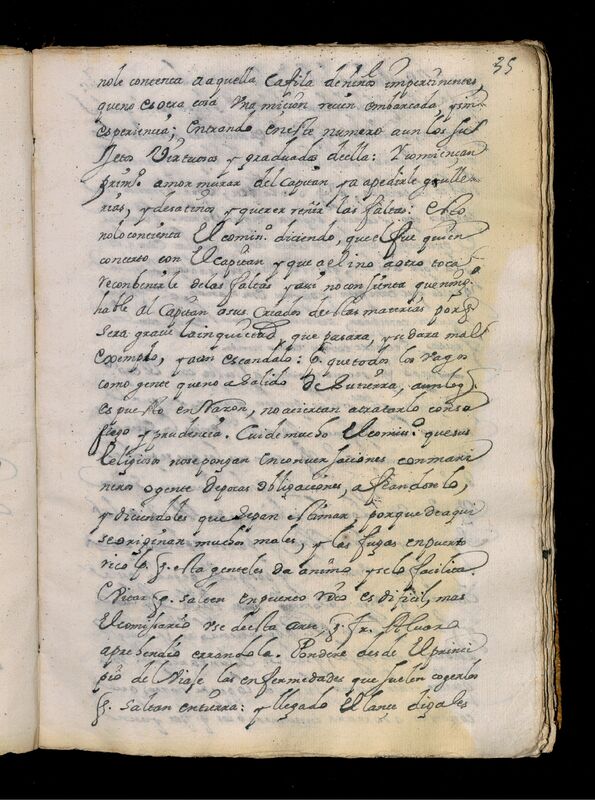 35
nole concenta a aquella cafila de niños impertinentes
que no es otra cosa Una mision recien embarcada, y sin
esperiencia; Entrando en este numero aun los suf
Jetos Virtuosos y graduados de ella: Y comienzan
prim.o a mormurar del Capitan ya a pedirle gulle
rias, y desatinos y querer reñir las faltas: Esto
no lo concienta El comis.o diciendo, que el fue quien
concerto con El capitan y que a el i no a otro toca
reconbenirle de las faltas y asi no consienta que ning.o
hable al Capitan a sus Criados de estas materias por q.
sera grave la inquietud, que pasara, y se dara mal
exemplo, y aun escandalo: q. que todos los
como gente que no a salido de su tierra, aunlog.
es puesto en Razon, no aciertan a tratarlo con so
siego y prudencia. Cuide mucho El comis.o que sus
Religiosos no se pongan en conversaciones con mari
neros o gente de pocas obligaciones, afeandoselo,
y diciendoles que sepan estimar, porque de aqui
se originan muchos males, y las fugas en puerto
rico p. q. esta gente les da animo y se lo facilita
Evitar q. salten en puerto rico es dificil, mas
El comissario use de esta arte, q. fr. Alvaro
aprehendio errandola. Pondere desde El princi
pio del Viaje las enfermedades que suelen cogerlos
q. saltan en tierra: y llegado El lance digales